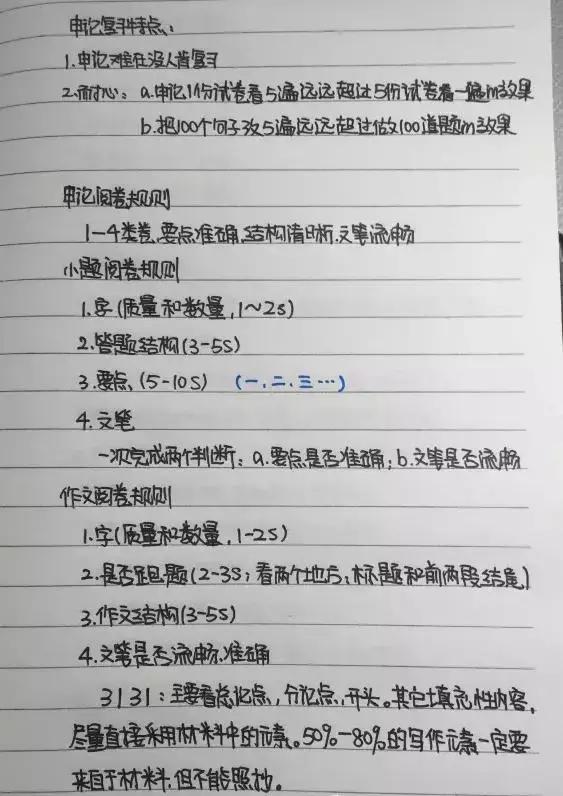 申论复习特点:
1.申论难在没人督复习
2.耐心: a.申论1份试卷看5遍远远超过5份试卷看一遍的效果
b.把100个句子改5遍远远超过做100道题的效果
申论阅卷规则
1—4类卷,要点准确,结构清晰,文笔流畅
小题阅卷规则
1.字(质量和数量,1~2s)
2.答题结构(3-5s)
3.要点,(5-10s) (一、二、三…)
4.文笔
一次完成两个判断:a.要点是否准确;b.文笔是否流畅
作文阅卷规则
1.字(质量和数量,1-2s)
2.是否跑题(2-3s;看两个地方;标题和前两段结尾)
3.作文结构(3-5s)
4.文笔是否流畅、准确
3131:主要看总论点,分论点,开头。其它填充性内容,
尽量直接采用材料中的元素。50%-80%的写作元素一定要
来自于材料,但不能照抄。